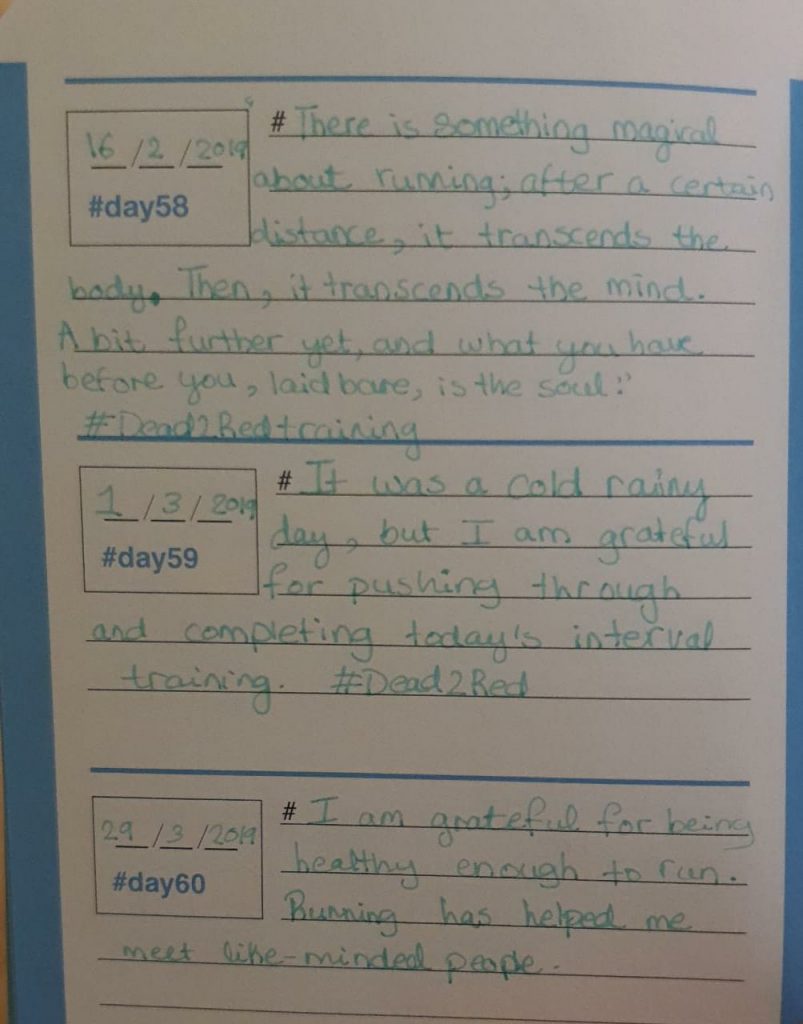 16/2/2019
#day58
# There is something magical
about running; after a certain
distance, it transcends the
body. Then, it transcends the mind.
A bit further yet, and what you have
before you, laid bare, is the soul."
#Dead2Redtraining
1/3/2019
#day59
# It was a cold rainy
day, but I am grateful
for pushing through
and completing today's interval
training. #Dead2Red
29/3/2019
#day60
# I am grateful for being
healthy enough to run.
Running has helped me
meet like-minded people.